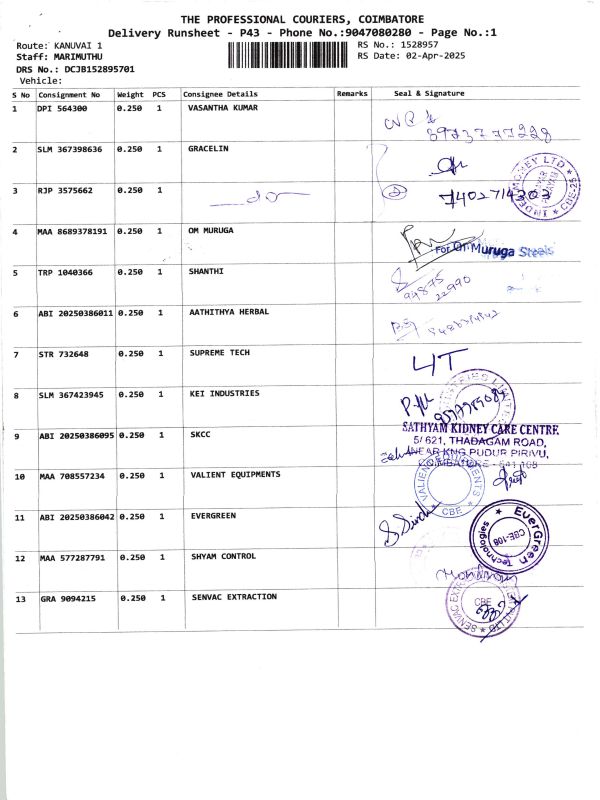 THE PROFESSIONAL COURIERS, COIMBATORE
Delivery Runsheet - P43 - Phone No.:9047080280 - Page No.:1
Route: KANUVAI 1
RS No.: 1528957
Staff: MARIMUTHU
RS Date: 02-Apr-2025
DRS No.: DCJB152895701
Vehicle:
S No Consignment No Weight PCS Consignee Details Remarks Seal & Signature
1 DPI 564300 0.250 1 VASANTHA KUMAR
2 SLM 367398636 0.250 1 GRACELIN
3 RJP 3575662 0.250 1
4 MAA 8689378191 0.250 1 OM MURUGA
For Om Muruga Steels
5 TRP 1040366 0.250 1 SHANTHI
6 ABI 20250386011 0.250 1 AATHITHYA HERBAL
7 STR 732648 0.250 1 SUPREME TECH
8 SLM 367423945 0.250 1 KEI INDUSTRIES
9 ABI 20250386095 0.250 1 SKCC
SATHYAM KIDNEY CARE CENTRE
5/ 621, THADAGAM ROAD,
NEAR KNG PUDUR PIRIVU,
COIMBATORE - 641 108
10 MAA 708557234 0.250 1 VALIENT EQUIPMENTS
CBE
11 ABI 20250386042 0.250 1 EVERGREEN
EverGreen Technologies
CBE-108
12 MAA 577287791 0.250 1 SHYAM CONTROL
13 GRA 9094215 0.250 1 SENVAC EXTRACTION
CBE